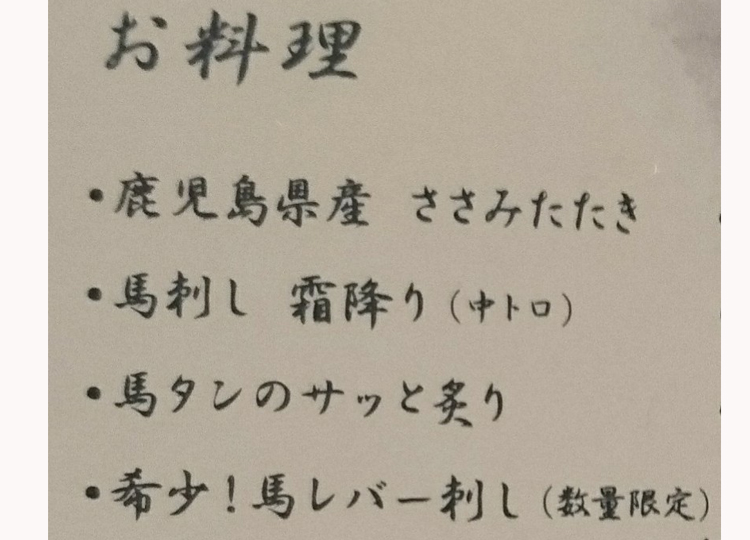 お料理
・鹿児島県産 ささみたたき
・馬刺し 霜降り（中トロ）
・馬タンのサッと炙り
・希少！馬レバー刺し（数量限定）